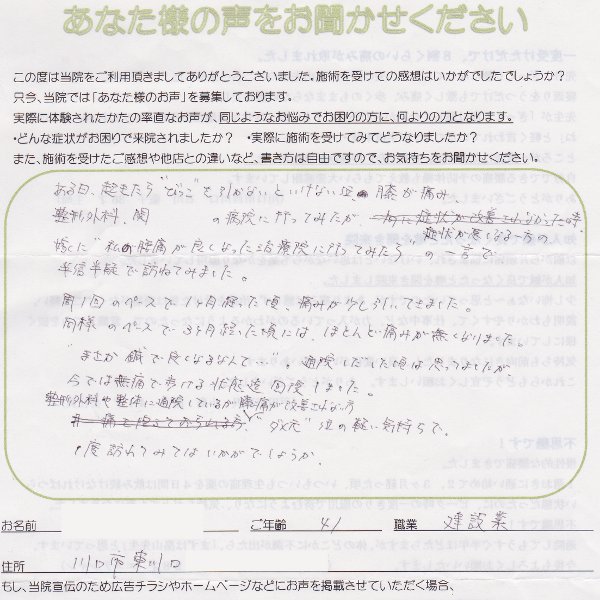 あなた様の声をお聞かせください
この度は当院をご利用頂きましてありがとうございました。施術を受けての感想はいかがでしたでしょうか?
只今、当院では「あなた様のお声」を募集しております。
実際に体験されたかたの率直なお声が、同じようなお悩みでお困りの方に、何よりの力となります。
・どんな症状がお困りで来院されましたか? ・実際に施術を受けてみてどうなりましたか?
また、施術を受けたご感想や他店との違いなど、書き方は自由ですので、お気持ちをお聞かせください。
ある日、起きたら“びっこ”を引かないといけない位 膝が痛み、
整形外科、関 の病院に行ってみたが、
症状が悪くなる一方の時
嫁に“私の腰痛が良くなった治療院に行ってみたら”の一言で
半信半疑で訪ねてみました。
周1回のペースで1ヶ月経った頃、痛みが少し引いてきました。
同様のペースで3ヶ月経った頃には、ほとんど痛みが無くなりました。
“まさか鍼で良くなるなんて…”。通院しだした頃は思ってましたが
今では無痛で歩ける状態迄回復しました。
整形外科や整体に通院しているが膝痛が改善されない方
“ダメ元”位の軽い気持ちで、
1度訪れてみてはいかがでしょうか。
お名前 ご年齢 41 職業 建設業
住所 川口市東川口
もし、当院宣伝のため広告チラシやホームページなどにお声を掲載させていただく場合、